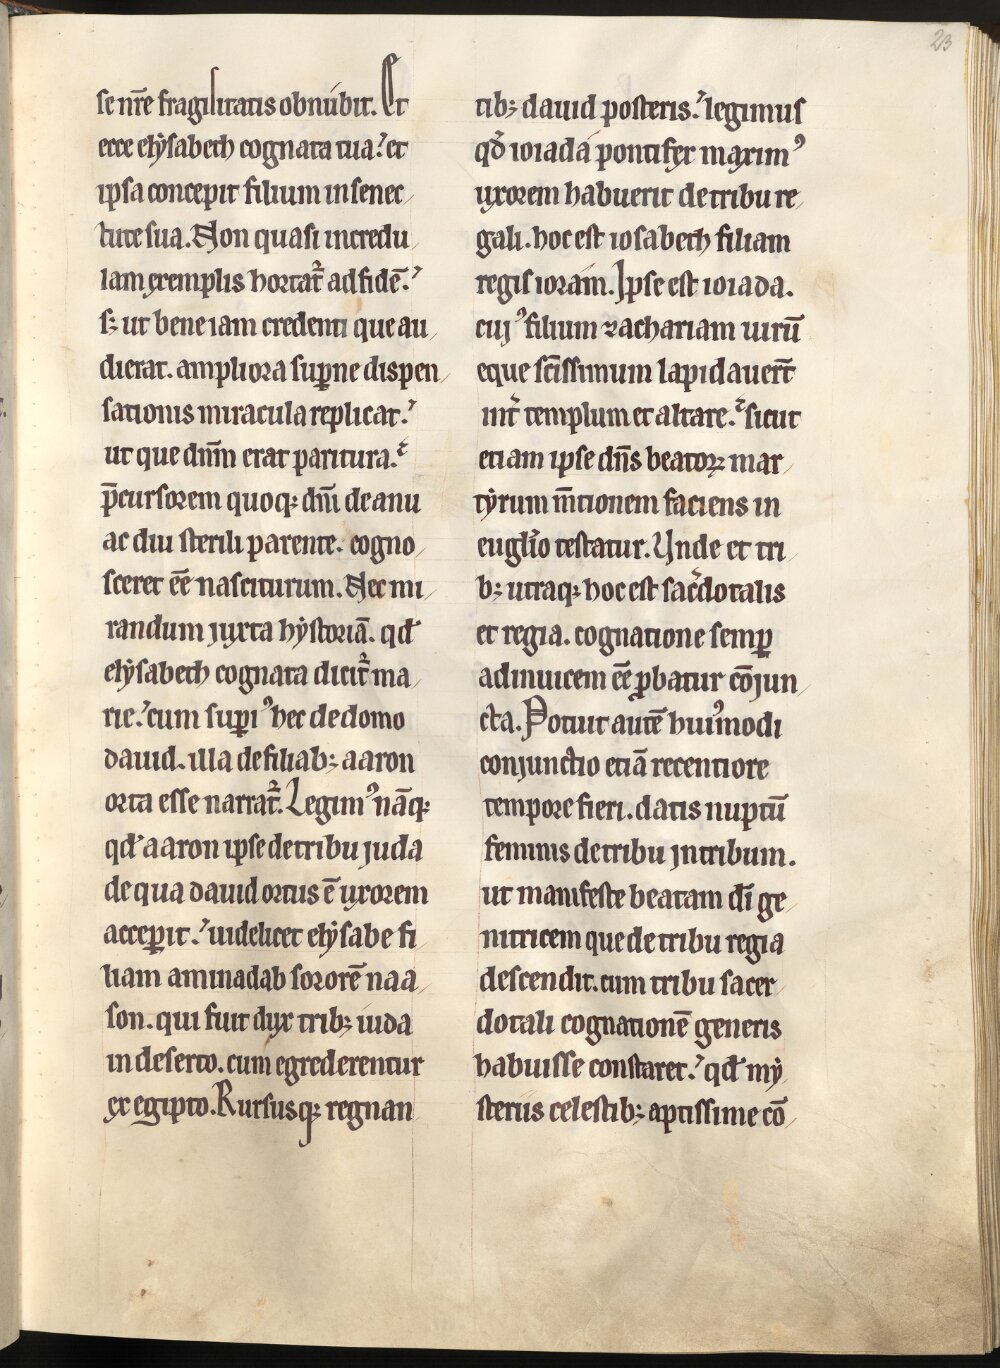 23
se nr̄e fragilitatis obnubit. Et
ecce elẏsabeth cognata tua? et
ipsa concepit filium in senec/
tute sua. Non quasi incredu/
lam exemplis hortat᷑ ad fidē.?
sꝫ ut bene iam credenti que au/
dierat. ampliora supꝑne dispen/
sationis miracula replicat.?
ut que dn̄m erat paritura.?
p̄cursorem quoqꝫ dn̄i de anu
ac diu sterili parente. cogno/
sceret eē nasciturum. Nec mi/
randum juxta hẏstoriā. qđ
elẏsabeth cognata dicit᷑ ma/
rie.? cum suꝑiꝰ hec de domo
dauid. illa de filiabꝫ aaron
orta esse narrat᷑. Legimꝰ nāqꝫ
qđ aaron ipse de tribu juda
de qua dauid ortus ē uxorem
acceꝑit.? uidelicet elẏsabe fi/
liam aminadab sororē naa/
son. qui fuit dux tribꝫ iuda
in deserto. cum egrederentur
ex egipto. Rursusqꝫ regnan/
tibꝫ dauid posteris.? legimus
qđ ioiada pontifex maximꝰ
uxorem habuerit de tribu re/
gali. hoc est iosabeth filiam
regis ioram. Ipse est ioiada.
cujꝰ filium zachariam uirū
eque sc̄issimum lapidauer̄t
int᷑ templum et altare.? sicut
etiam ipse dn̄s beatoꝝ mar/
tẏrum m̄tionem faciens in
eugl̄io testatur. Unde et tri/
bꝫ utraqꝫ hoc est sac̓dotalis
et regia. cognatione semꝑ
adinuicem eē ꝓbatur cōjun/
cta. Potuit autē huiꝰmodi
conjunctio etiā recentiore
tempore fieri. datis nuptū
feminis de tribu jn tribum.
ut manifeste beatam dī ge/
nitricem que de tribu regia
descendit. cum tribu sacer/
dotali cognationē generis
habuisse constaret.? qđ mẏ/
steriis celestibꝫ aptissime cō/